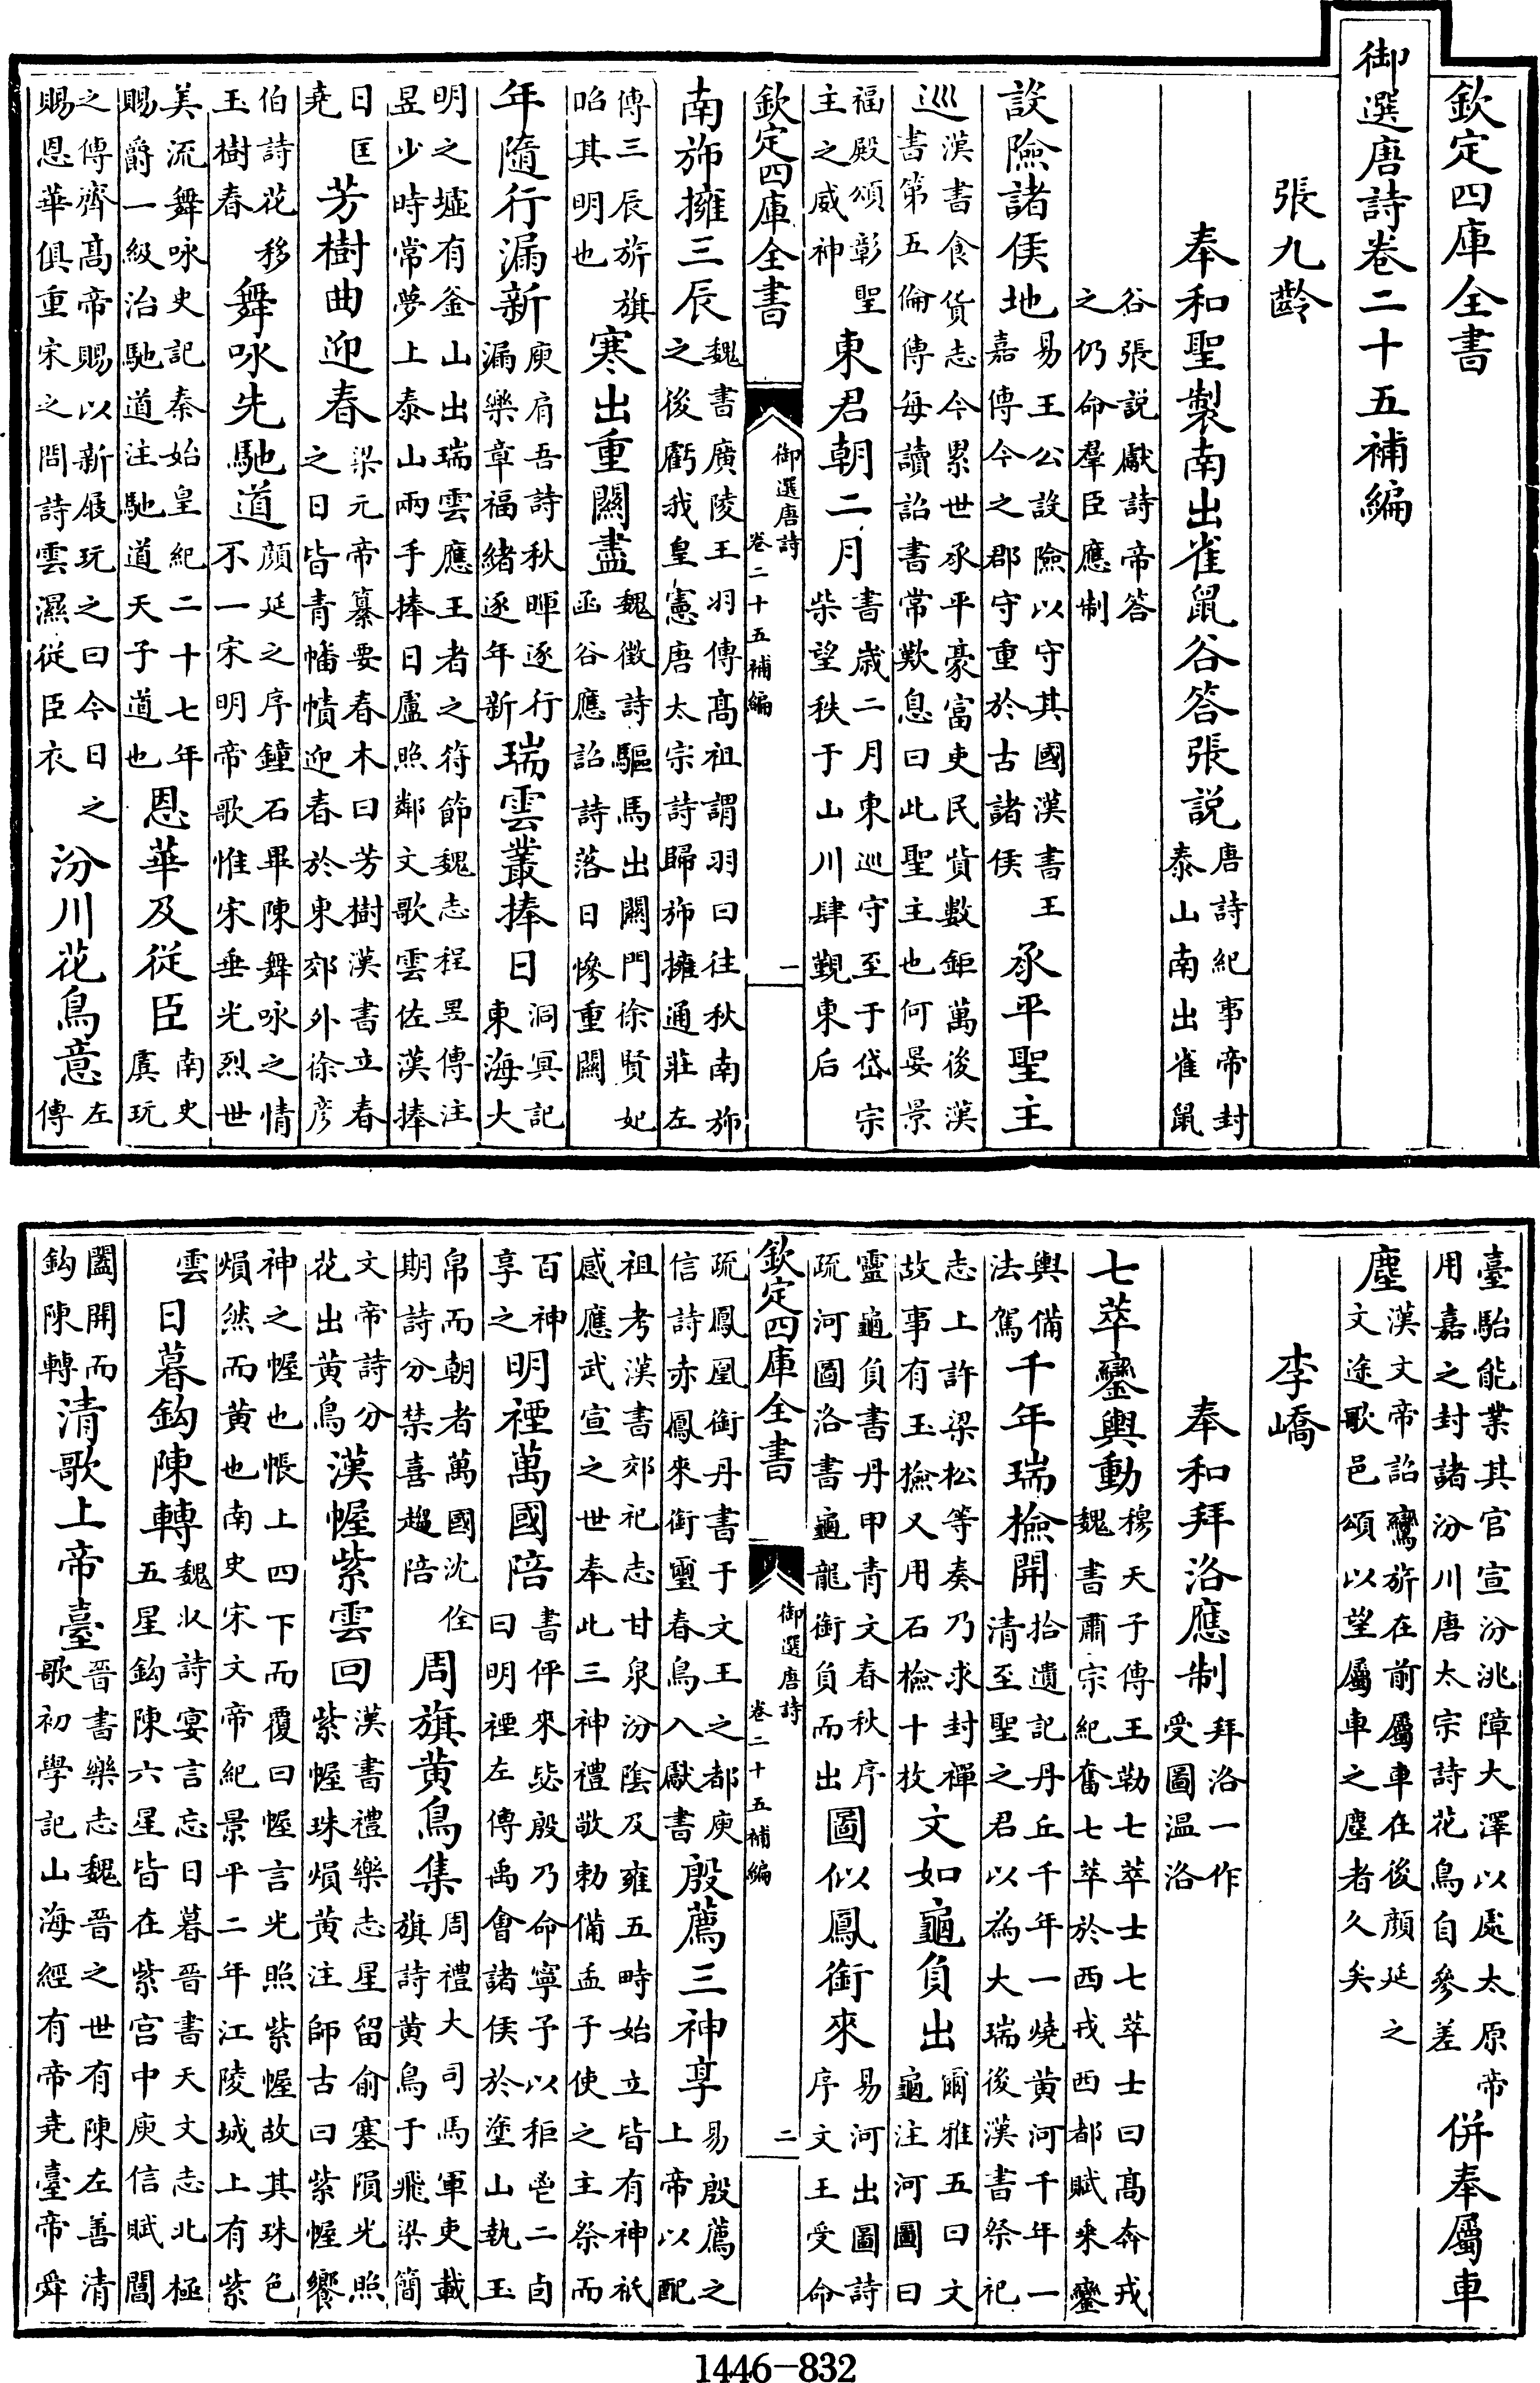 欽定四庫全書
御選唐詩卷二十五補編
張九齡
奉和聖製南出雀鼠谷答張說唐詩紀事帝封泰山南出雀鼠
谷張說獻詩帝答之仍命羣臣應制
設險諸侯地易王公設險以守其國漢書王嘉傳今之郡守重於古諸侯承平聖主
巡漢書食貨志今累世承平豪富吏民貲數鉅萬後漢書第五倫傳每讀詔書常歎息曰此聖主也何晏景
福殿頌彰聖主之威神東君朝二月書歲二月東巡守至于岱宗柴望秩于山川肆覲東后
欽定四庫全書
御選唐詩
卷二十五補編
一
南斾擁三辰魏書廣陵王羽傳高祖謂羽曰往秋南斾之後虧我皇憲唐太宗詩歸斾擁通莊左
傳三辰旂旗昭其明也寒出重關盡魏徵詩驅馬出關門徐賢妃函谷應詔詩落日慘重關
年隨行漏新庾肩吾詩秋暉逐行漏樂章福緒逐年新瑞雲叢捧日洞冥記東海大
明之墟有釜山出瑞雲應王者之符節魏志程昱傳注昱少時常夢上泰山兩手捧日盧照鄰文歌雲佐漢捧
日匡堯芳樹曲迎春梁元帝纂要春木曰芳樹漢書立春之日皆青幡幘迎春於東郊外徐彦
伯詩花移玉樹春舞咏先馳道顔延之序鐘石畢陳舞咏之情不一宋明帝歌惟宋垂光烈世
美流舞咏史記秦始皇紀二十七年賜爵一級治馳道注馳道天子道也恩華及從臣南史虞玩
之傳齊高帝賜以新屐玩之曰今日之賜恩華俱重宋之問詩雲濕從臣衣汾川花鳥意左傳
臺駘能業其官宣汾洮障大澤以處太原帝用嘉之封諸汾川唐太宗詩花鳥自參差併奉屬車
塵漢文帝詔鸞旂在前屬車在後顔延之文途歌邑頌以望屬車之塵者久矣
李嶠
奉和拜洛應制拜洛一作受圖温洛
七萃鑾輿動穆天子傳王勒七萃士七萃士曰高奔戎魏書肅宗紀奮七萃於西戎西都賦乘鑾
輿備法駕千年瑞檢開拾遺記丹丘千年一燒黄河千年一清至聖之君以為大瑞後漢書祭祀
志上許梁松等奏乃求封禪故事有玉檢又用石檢十枚文如龜負出爾雅五曰文龜注河圖曰
靈龜負書丹甲青文春秋序疏河圖洛書龜龍銜負而出圖似鳳銜來易河出圖詩序文王受命
欽定四庫全書
御選唐詩
卷二十五補編
二
疏鳳凰銜丹書于文王之都庾信詩赤鳳來銜璽春鳥入獻書殷薦三神享易殷薦之上帝以配
祖考漢書郊祀志甘泉汾陰及雍五畤始立皆有神祇感應武宣之世奉此三神禮敬勅備孟子使之主祭而
百神享之明禋萬國陪書伻來毖殷乃命寧予以秬鬯二卣曰明禋左傳禹會諸侯於塗山執玉
帛而朝者萬國沈佺期詩分禁喜趨陪周旗黄鳥集周禮大司馬軍吏載旗詩黄鳥于飛梁簡
文帝詩分花出黄鳥漢幄紫雲回漢書禮樂志星留俞塞隕光照紫幄珠熉黄注師古曰紫幄饗
神之幄也帳上四下而覆曰幄言光照紫幄故其珠色熉然而黄也南史宋文帝紀景平二年江陵城上有紫
雲日暮鈎陳轉魏收詩宴言忘日暮晉書天文志北極五星鈎陳六星皆在紫宫中庾信賦閶
闔開而鈎陳轉清歌上帝臺晉書樂志魏晉之世有陳左善清歌初學記山海經有帝堯臺帝舜
1446-832